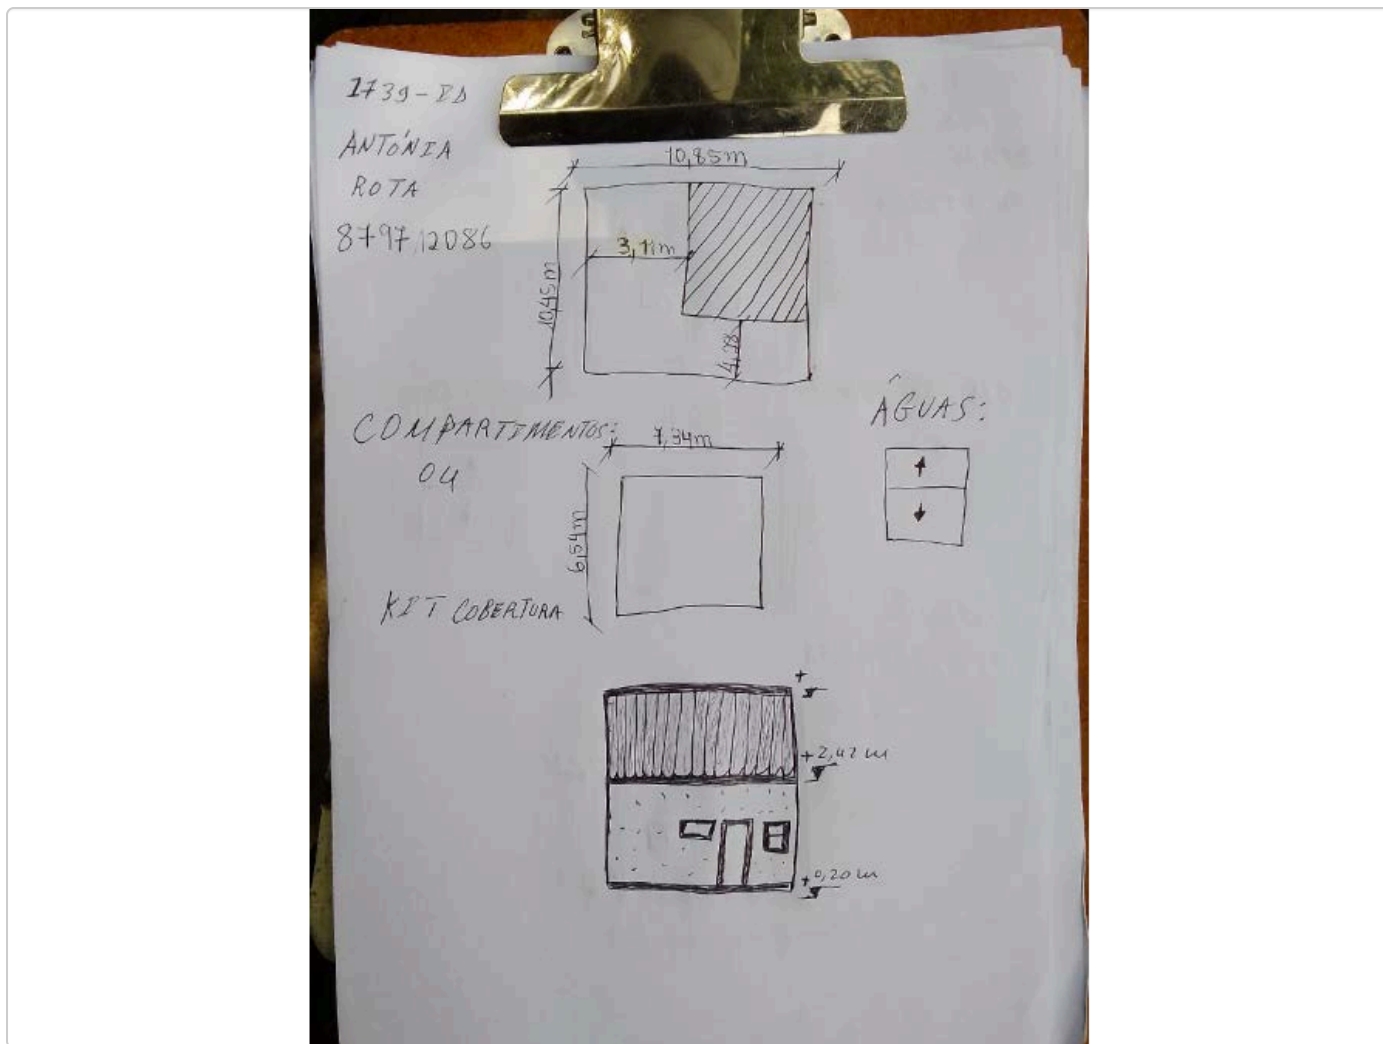 1739-ID
ANTÓNIA
ROTA
879712086
10,85m
3,11m
10,45m
4,28
COMPARTIMENTOS:
04
ÁGUAS:
7,34m
6,54m
KIT COBERTURA
+
+2,42 m
+0,20 m